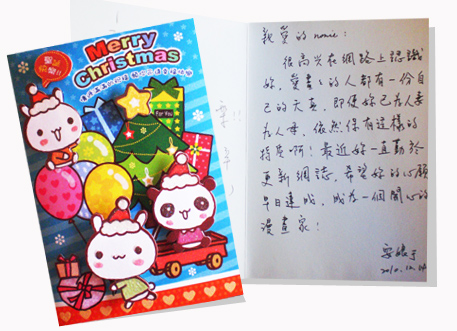 Merry
Christmas
For You
親愛的 nonie:
很高兴在網路上認識
妳,愛畫々的人都有一份自
己的天真,即便妳已為人妻
为人母,依然保有這樣的
特质啊!最近妳一直勤於
更新網誌,希望妳的心願
早日達成,成為一個開心的
漫畫家!